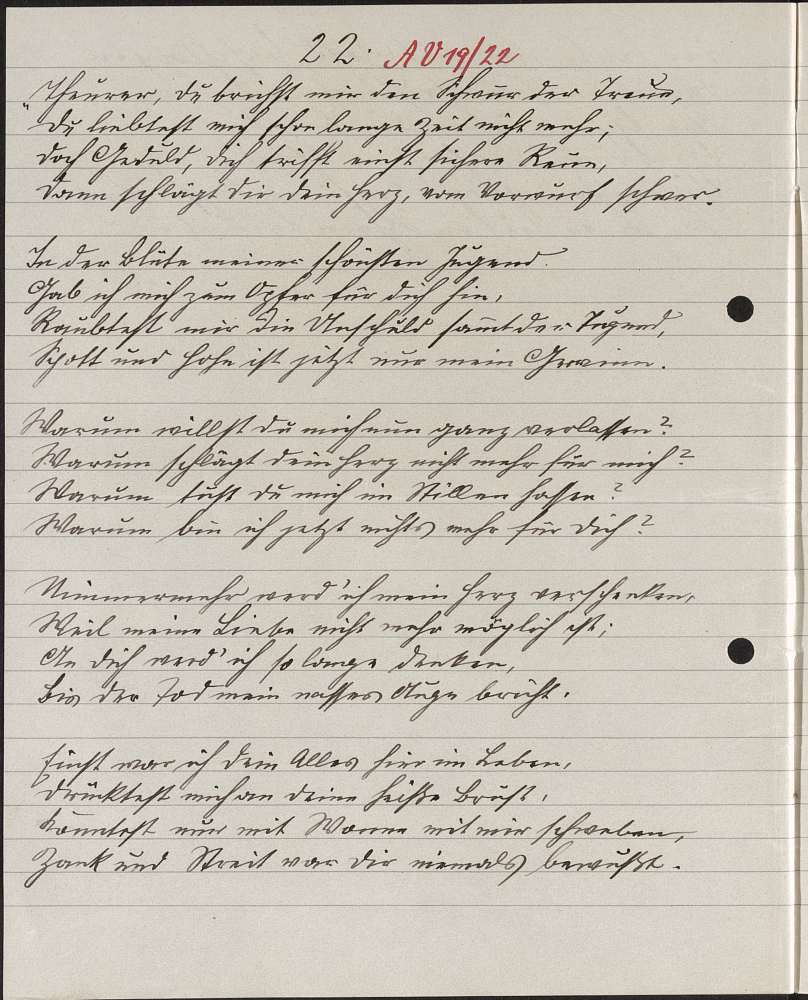 22. AV 19/22
„Theurer, du brichst mir den Schwur der Treue,
Du liebtest mich schon lange Zeit nicht mehr;
Doch Geduld, dich trifft einst sichere Reue,
Dann schlägt dir dein Herz, vom Vorwurf schwer.
In der Blüte meiner schönsten Jugend
Gab ich mich zum Opfer für dich hin,
Raubtest mir die Unschuld samt der Tugend,
Spott und Hohn ist jetzt nur mein Gewinn.
Warum willst du mich nun ganz verlassen?
Warum schlägt dein Herz nicht mehr für mich?
Warum tust du mich im Stillen hassen?
Warum bin ich jetzt nichts mehr für dich?
Nimmermehr werd' ich mein Herz verschenken,
Weil meine Liebe nicht mehr möglich ist;
An dich werd' ich so lange denken,
Bis der Tod mein nasses Auge bricht.
Einst war ich dein Alles hier im Leben,
Drücktest mich an deine heiße Brust,
Konntest nur mit Wonne mit mir schweben,
Zank und Streit war dir niemals bewußt.